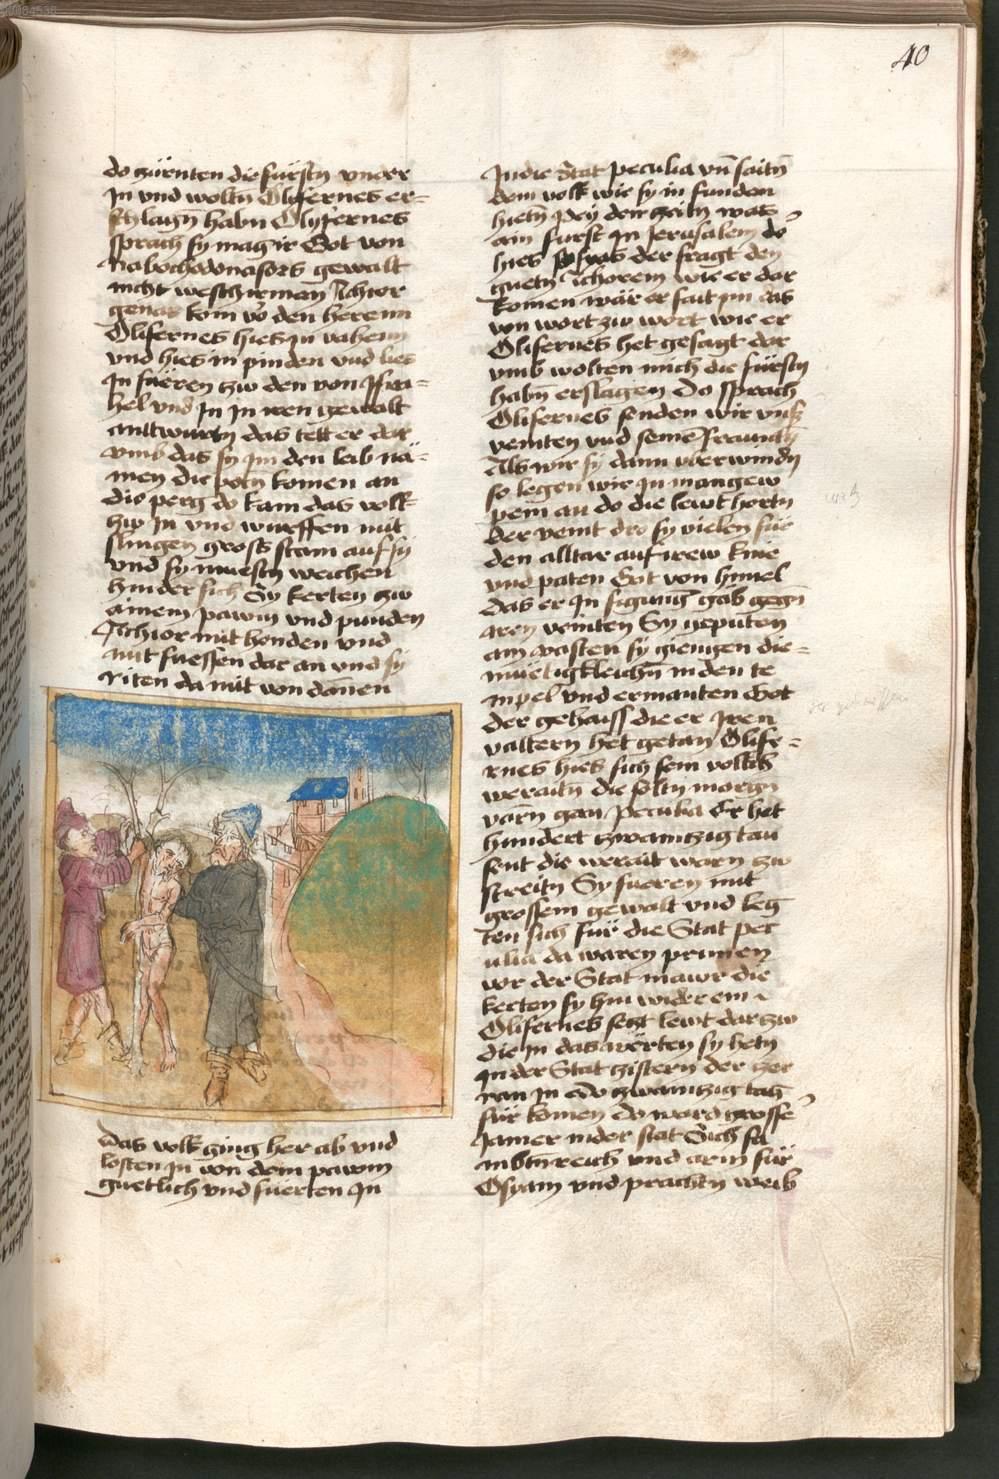 40
do zürnten die fürstn̄ vnder
In vnd woltn̄ Olifernes er=
schlagn̄ habn Olyfernes
sprach sy mag ir Got von
nabochodonasors gewalt
nicht weschirmen Achior
genas kom vō den herenn
Olifernes hies In vahenn
vnd hies in pinden vnd lies
In füeren zw den von Isra=
hel vnd In In iren gewalt
anttwurtn das tett er dar
vmb das sy Im den leib nä=
men die potn komen an
die perg do kam das volk
zw In vnd wurffen mit
slingen gross stain auf sy
vnd sy muestn weichen
hinder sich Sy kerten zw
ainem pawm vnd punden
Achior mit henden vnd
mit fuessen dar an vnd sy
riten da mit von dannen
das volk ging her ab vnd
losten In von dem pawm
guetlich vnd fuerten In
In die Stat peculia vn̄ saitn̄
dem volk wie sy in funden
hietn̄ pey den zeitn was
ain fürst In Jerusalem do
hies der fragt den
guetn Achorem wie er dar
komen wär er sait im das
von wort zw wort wie er
Olifernes het gesagt dar
vmb wolten mich die fürstn
habn̄ erslagen Do sprach
Olifernes senden wir vnss
veinten vnd seine freundn̄
Als wir sy dann vberwindn
so legen wir In mangew
pein an do die lewt hortn
der veint dro sy vielen für
den alltar auf irew knie
vnd paten Got von himel
das er In sigung gäb gegn
iren veinten Sy geputen
ain vasten sy giengen die=
muetigkleichn̄ in den te
mpel vnd ermanten Got
der gehaiss die er Iren
vättern het getan Olife=
rnes hies sich sein volkh
weraitn die soltn morgn
varn gan peculia Er het
hundert zwaintzig tau
sent die werait warn zw
streitn Sy fueren mit
grossem gewalt vnd leg
ten sich für die Stat pec
ulia da waren prunnen
vor der Stat mawr die
kerten sy hin wider ein
Olifernes sezt lewt dar zw
die in das wërten sy hetn
In der Stat zistern der zer
ran In Do zwaintzig tag
für komen Do ward grosse
Jamer in der stat Sich sa
mbtn̄ reich vnd arm für
Osyam vnd prachtn weib